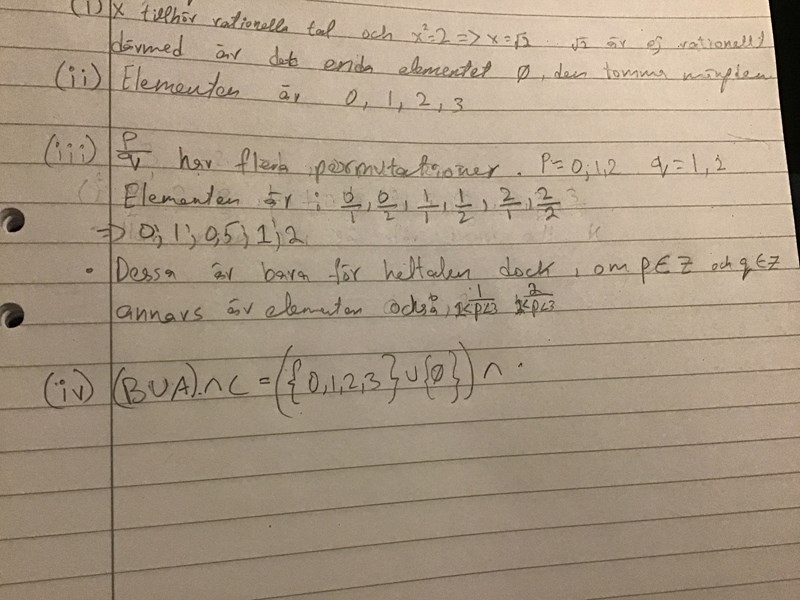 (i) x tillhör rationella tal och x²=2 => x=√2 √2 är ej rationellt
därmed är det enda elementet ∅, den tomma mängden
(ii) Elementen är 0, 1, 2, 3
(iii) p/q har flera permutationer. P=0,1,2 q=1,2
Elementen är: 0/1, 0/2, 1/1, 1/2, 2/1, 2/2
=> 0; 1; 0,5; 1; 2
• Dessa är bara för heltalen dock, om p∈Z och q∈Z
annars är elementen också, 1/1<p<3 2/1<p<3
(iv) (B∪A)∩C = ({0,1,2,3}∪{∅})∩